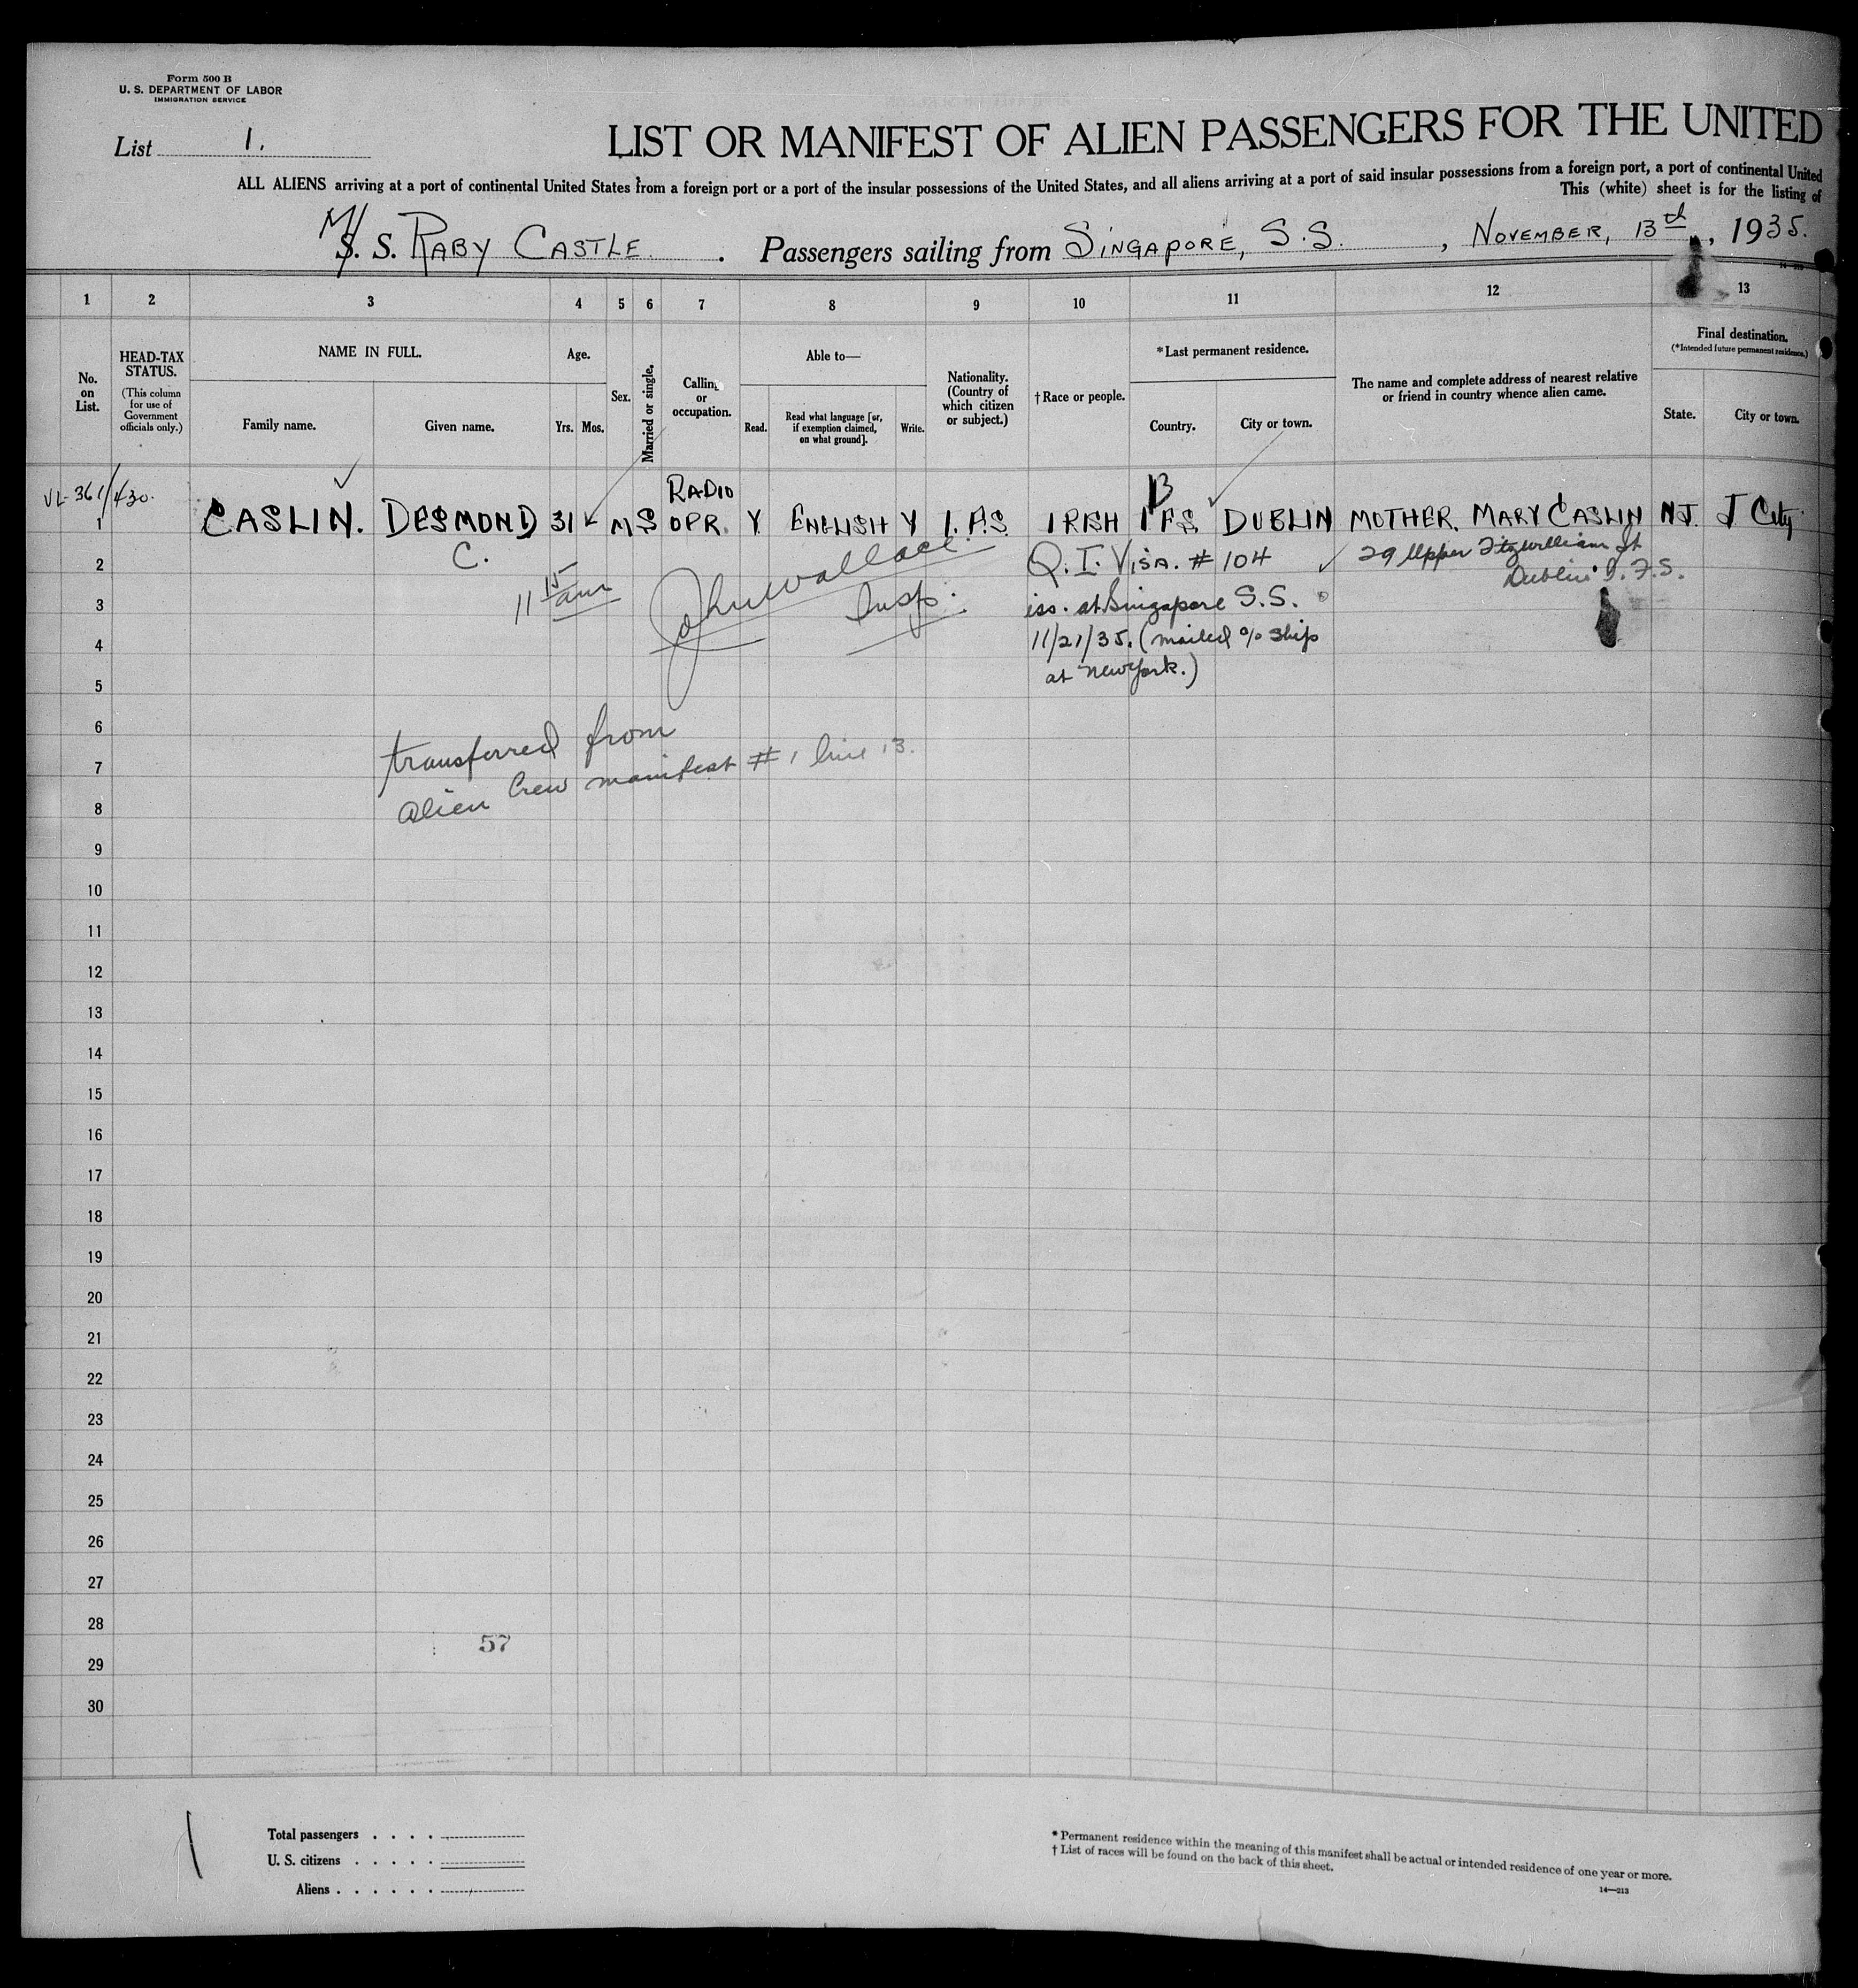 Form 500 B
U. S. DEPARTMENT OF LABOR
IMMIGRATION SERVICE
List 1.
LIST OR MANIFEST OF ALIEN PASSENGERS FOR THE UNITED
ALL ALIENS arriving at a port of continental United States from a foreign port or a port of the insular possessions of the United States, and all aliens arriving at a port of said insular possessions from a foreign port, a port of continental United
This (white) sheet is for the listing of
M/S. S. RABY CASTLE. Passengers sailing from SINGAPORE, S.S., NOVEMBER, 13th, 1935.
1 2 3 4 5 6 7 8 9 10 11 12 13
No. on List.
HEAD-TAX STATUS.
(This column for use of Government officials only.)
NAME IN FULL.
Family name. Given name.
Age.
Yrs. Mos.
Sex.
Married or single.
Calling or occupation.
Able to—
Read. Read what language [or, if exemption claimed, on what ground]. Write.
Nationality. (Country of which citizen or subject.)
†Race or people.
*Last permanent residence.
Country. City or town.
The name and complete address of nearest relative or friend in country whence alien came.
Final destination.
(*Intended future permanent residence.)
State. City or town.
VL-361/430.
1 CASLIN. DESMOND 31 M S RADIO OPR. Y ENGLISH Y I.F.S. IRISH I.F.S. DUBLIN MOTHER. MARY CASLIN N.J. J City
C.
2 Q.I. VISA. # 104 29 Upper Fitzwilliam St
Dublin I.F.S.
11 15 am John Wallace Insp.
3 iss. at Singapore S.S.
4 11/21/35. (mailed % ship
5 at New York.)
6 transferred from
7 alien Crew manifest # 1 line 13.
8
9
10
11
12
13
14
15
16
17
18
19
20
21
22
23
24
25
26
27
28
57
29
30
Total passengers
U. S. citizens
Aliens
* Permanent residence within the meaning of this manifest shall be actual or intended residence of one year or more.
† List of races will be found on the back of this sheet.
14—213